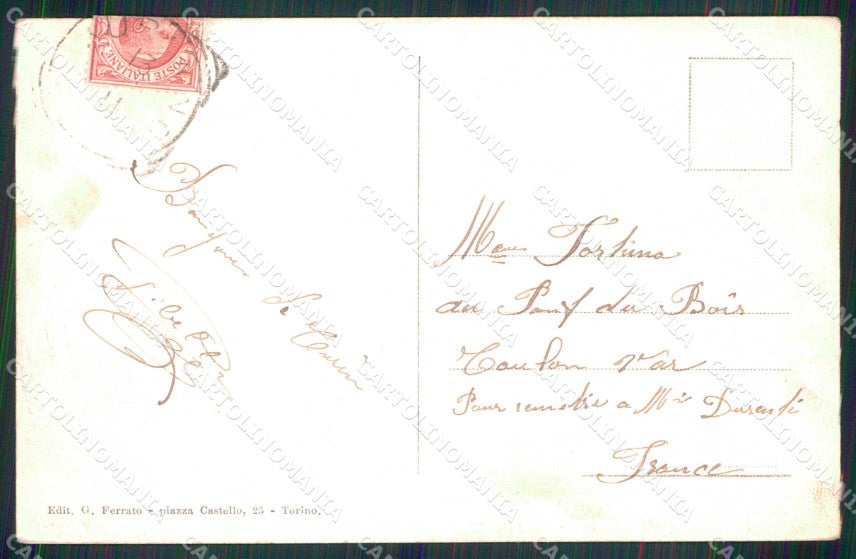 POSTE ITALIANE
Bonjour de Turin
Mme Fortuna
au Pont du Bois
Toulon Var
Pour remettre a Mr Durandi
France
Edit. G. Ferrato - piazza Castello, 25 - Torino.
CARTOLINOMANIA